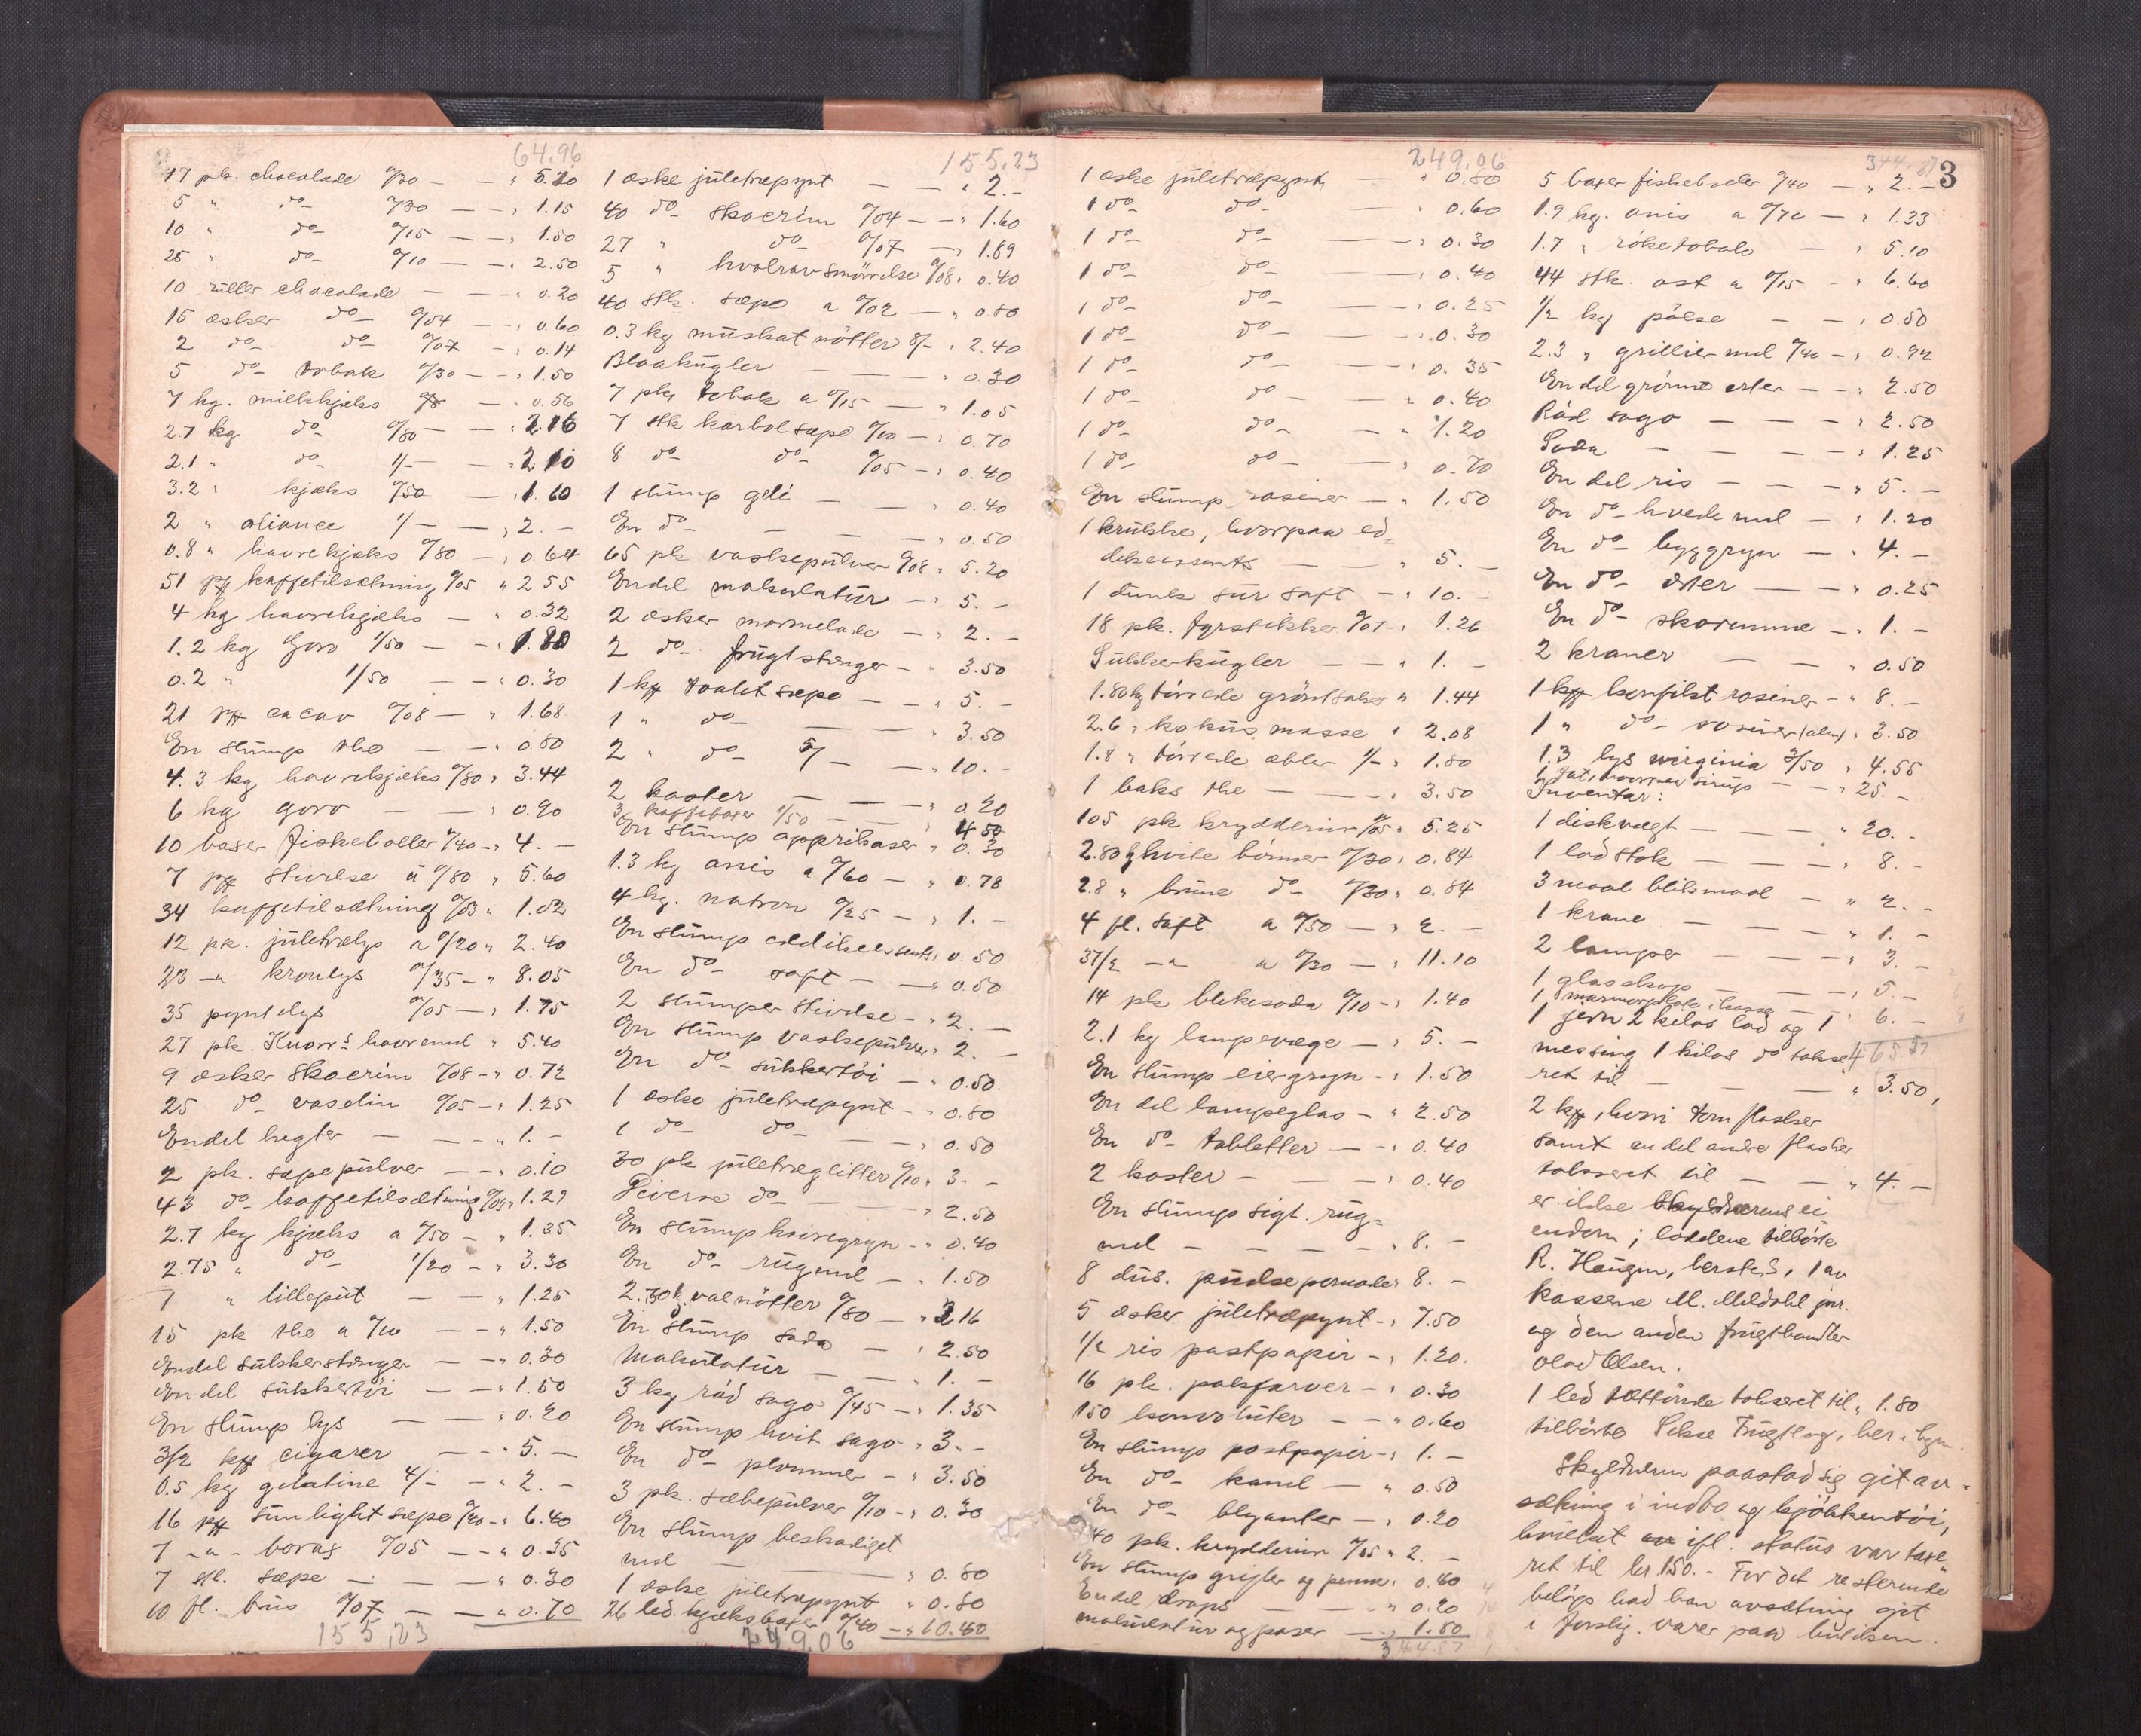 64.96
17 pk. chocolade 0/30 — — " 5.10
5 " do 0/30 — — " 1.15
10 " do 0/15 — — " 1.50
25 " do 0/10 — — " 2.50
10 ruller chocolade — — " 0.20
15 æsker do 0/04 — — " 0.60
2 do do 0/07 — " 0.14
5 do tobak 0/30 — — " 1.50
7 kg. milkkjæks — " 0.56
2.7 kg do 0/80 — — " 2.16
2.1 " do 1/— — " 2.10
3.2 " kjæks 0/50 — " 1.60
2 " aliance 1/— — " 2.—
0.8 " havrekjæks 0/80 — " 0.64
51 pk kaffetilsætning 0/05 " 2.55
4 kg havrekjæks — " 0.32
1.2 kg Goro 1/50 — — " 1.80
0.2 " 1/50 — — " 0.30
21 pk cacao 0/08 — " 1.68
En slump the — — " 0.80
4.3 kg havrekjæks 0/80 " 3.44
6 kg goro — — " 0.90
10 bøxer fiskeboller 0/40 — " 4.—
7 pk stivelse à 0/80 " 5.60
34 kaffetilsætning 0/03 " 1.02
12 pk. juletrelys a 0/20 " 2.40
23 — " kronlys 0/35 — " 8.05
35 pyntelys 0/05 — " 1.75
27 pk. Knorrs havremel " 5.40
9 æsker Skocrêm 0/08 — " 0.72
25 do vaselin 0/05 — " 1.25
Endel kegler — — — " 1.—
2 pk. sæpepulver — — " 0.10
43 do kaffetilsætning 0/03 " 1.29
2.7 kg kjæks a 0/50 — " 1.35
2.75 " do 1/20 — " 3.30
1 " lilleput — — " 1.25
15 pk the a 0/10 — — " 1.50
Endel sukkerstænger — — " 0.30
En del sukkertöi — — " 1.50
En slump lys — — " 0.20
3/2 ks cigarer — — " 5.—
0.5 kg gelatine 4/— — " 2.—
16 pk sunlight sæpe 0/40 — " 6.40
7 — " — borax 0/05 — — " 0.35
7 st. sæpe — — — " 0.30
10 fl. brus 0/07 — — " 0.70
155,23
155.23
1 æske juletræpynt — — " 2.—
40 do skocrêm 0/04 — — " 1.60
27 " do 0/07 — " 1.89
5 " hvalravsmörrelse 0/08 " 0.40
40 stk. sæpe a 0/02 — " 0.80
0.3 kg muskatnötter 8/— " 2.40
Blaakugler — — " 0.30
7 pk tobak a 0/15 — " 1.05
7 stk karbolsæpe 0/10 — " 0.70
8 do do 0/05 — " 0.40
1 slump gelé — — " 0.40
En do — — " 0.50
65 pk vaskepulver 0/08 " 5.20
Endel makulatur — " 5.—
2 æsker marmelade — " 2.—
2 do frugtstænger — " 3.50
1 ks toaletsæpe — — " 5.—
1 " do — — " 3.50
2 " do 5/— — " 10.—
2 koster — — — " 0.20
3 kaffebøxer 1/50 — — " 4.50
En slump apprikoser " 0.30
1.3 kg anis a 0/60 — " 0.78
4 kg. natron 0/25 — " 1.—
En slump eddikessents " 0.50
En do saft — — " 0.50
2 slumper stivelse — " 2.—
En slump vaskepulver " 2.—
En do sukkertöi — " 0.50
1 æske juletræpynt — " 0.80
1 do do — — " 0.50
30 pk juletræglitter 0/10 " 3.—
Diverse do — — " 2.50
En slump havregryn — " 0.40
En do rugmel — " 1.50
2.70 k. valnötter 0/80 — " 2.16
En slump soda — " 2.50
Makulatur — — " 1.—
3 kg röd sago 0/45 — " 1.35
En slump hvit sago " 3.—
En do plommer — " 3.50
3 pk. sæbepulver 0/10 — " 0.30
En slump beskadiget
mel — — " 0.80
1 æske juletræpynt " 0.80
26 led. kjæksbøxer 0/40 — " 10.40
249.06
249.06
1 æske juletræpynt — " 0.80
1 do do — " 0.60
1 do do — " 0.30
1 do do — " 0.40
1 do do — " 0.25
1 do do — " 0.30
1 do do — " 0.35
1 do do — " 0.40
1 do do — " 1.20
1 do do — " 0.70
En slump rosiner — " 1.50
1 krukke, hvorpaa ed=
dikessents — — " 5.—
1 dunk sur saft — " 10.—
18 pk. fyrstikker 0/07 — " 1.26
Sukkerkugler — — " 1.—
1.80 kg törrede grönsaker " 1.44
2.6 " kokusmasse " 2.08
1.8 " törrede æbler 1/— " 1.80
1 boks the — — " 3.50
105 pk krydderier 0/05 " 5.25
2.80 kg hvite bönner 0/30 " 0.84
2.8 " brune do 0/30 " 0.84
4 fl. saft a 0/50 — " 2.—
37/2 — " — a 0/30 — " 11.10
14 pk blekesoda 0/10 — " 1.40
2.1 kg lampevæge — " 5.—
En slump eiergryn — " 1.50
En del lampeglas — " 2.50
En do tabletter — " 0.40
2 koster — — — " 0.40
En slump sigt. rug=
mel — — — — " 8.—
8 dus. pudsepomade " 8.—
5 æsker juletræpynt — " 7.50
1/2 ris postpapir — " 1.20.
16 pk. pakfarver — " 0.30
150 konvolutter — — " 0.60
En slump postpapir — " 1.—
En do kanel — " 0.50
En do blyanter — " 0.20
40 pk. krydderier 0/05 " 2.—
En slump grifler og penne " 0.40
Endel drops — — " 0.20
Makulatur og poser — " 1.50
344.87
344.87
3
5 bøxer fiskeboller 0/40 — " 2.—
1.9 kg. anis a 0/70 — " 1.33
1.7 " röketobak — " 5.10
44 stk. ost a 0/15 — " 6.60
1/2 kg pölse — — " 0.50
2.3 " grilliermel 0/40 — " 0.92
En del grönne erter — " 2.50
Röd sago — — — " 2.50
Soda — — — — " 1.25
En del ris — — — " 5.—
En do hvedemel — " 1.20
En do byggryn — " 4.—
En do erter — — " 0.25
En do skoremme — " 1.—
2 kraner — — " 0.50
1 ks konfekt rosiner — " 8.—
1 " do rosiner (alm) " 3.50
1.3 lys virginia 3/50 " 4.55
1 fat, hvorpaa sirup — — " 25.—
Inventar:
1 diskvægt — — — " 20.—
1 lodstok — — — " 8.—
3 maal blikmaal — " 2.—
1 krane — — — " 1.—
2 lamper — — — " 3.—
1 glasskap — — — " 5.—
1 marmorplate i kasse — " 6.—
1 jern 2 kilos lod og 1
messing 1 kilos do takse 465.57
ret til — — — " 3.50,
2 ks, hvori tomflasker
samt en del andre flasker
takseret til — — " 4.—
er ikke skyldnerens ei
endom; loddene tilhörte
R. Haugen, bersteds, 1 av
kassene M. Meldahl jnr.
og den anden frugthandler
Olaf Olsen.
1 led tættönde takseret til " 1.80
tilhörte Sekse Frugtlag, her i byn.
Skyldneren paastod sig git av=
sætning i indbo og kjökkentöi,
hvilket ifl. status var takse=
ret til kr. 150.— For det resterende
belöp had han avsætning git
i forskj. varer paa butikken.